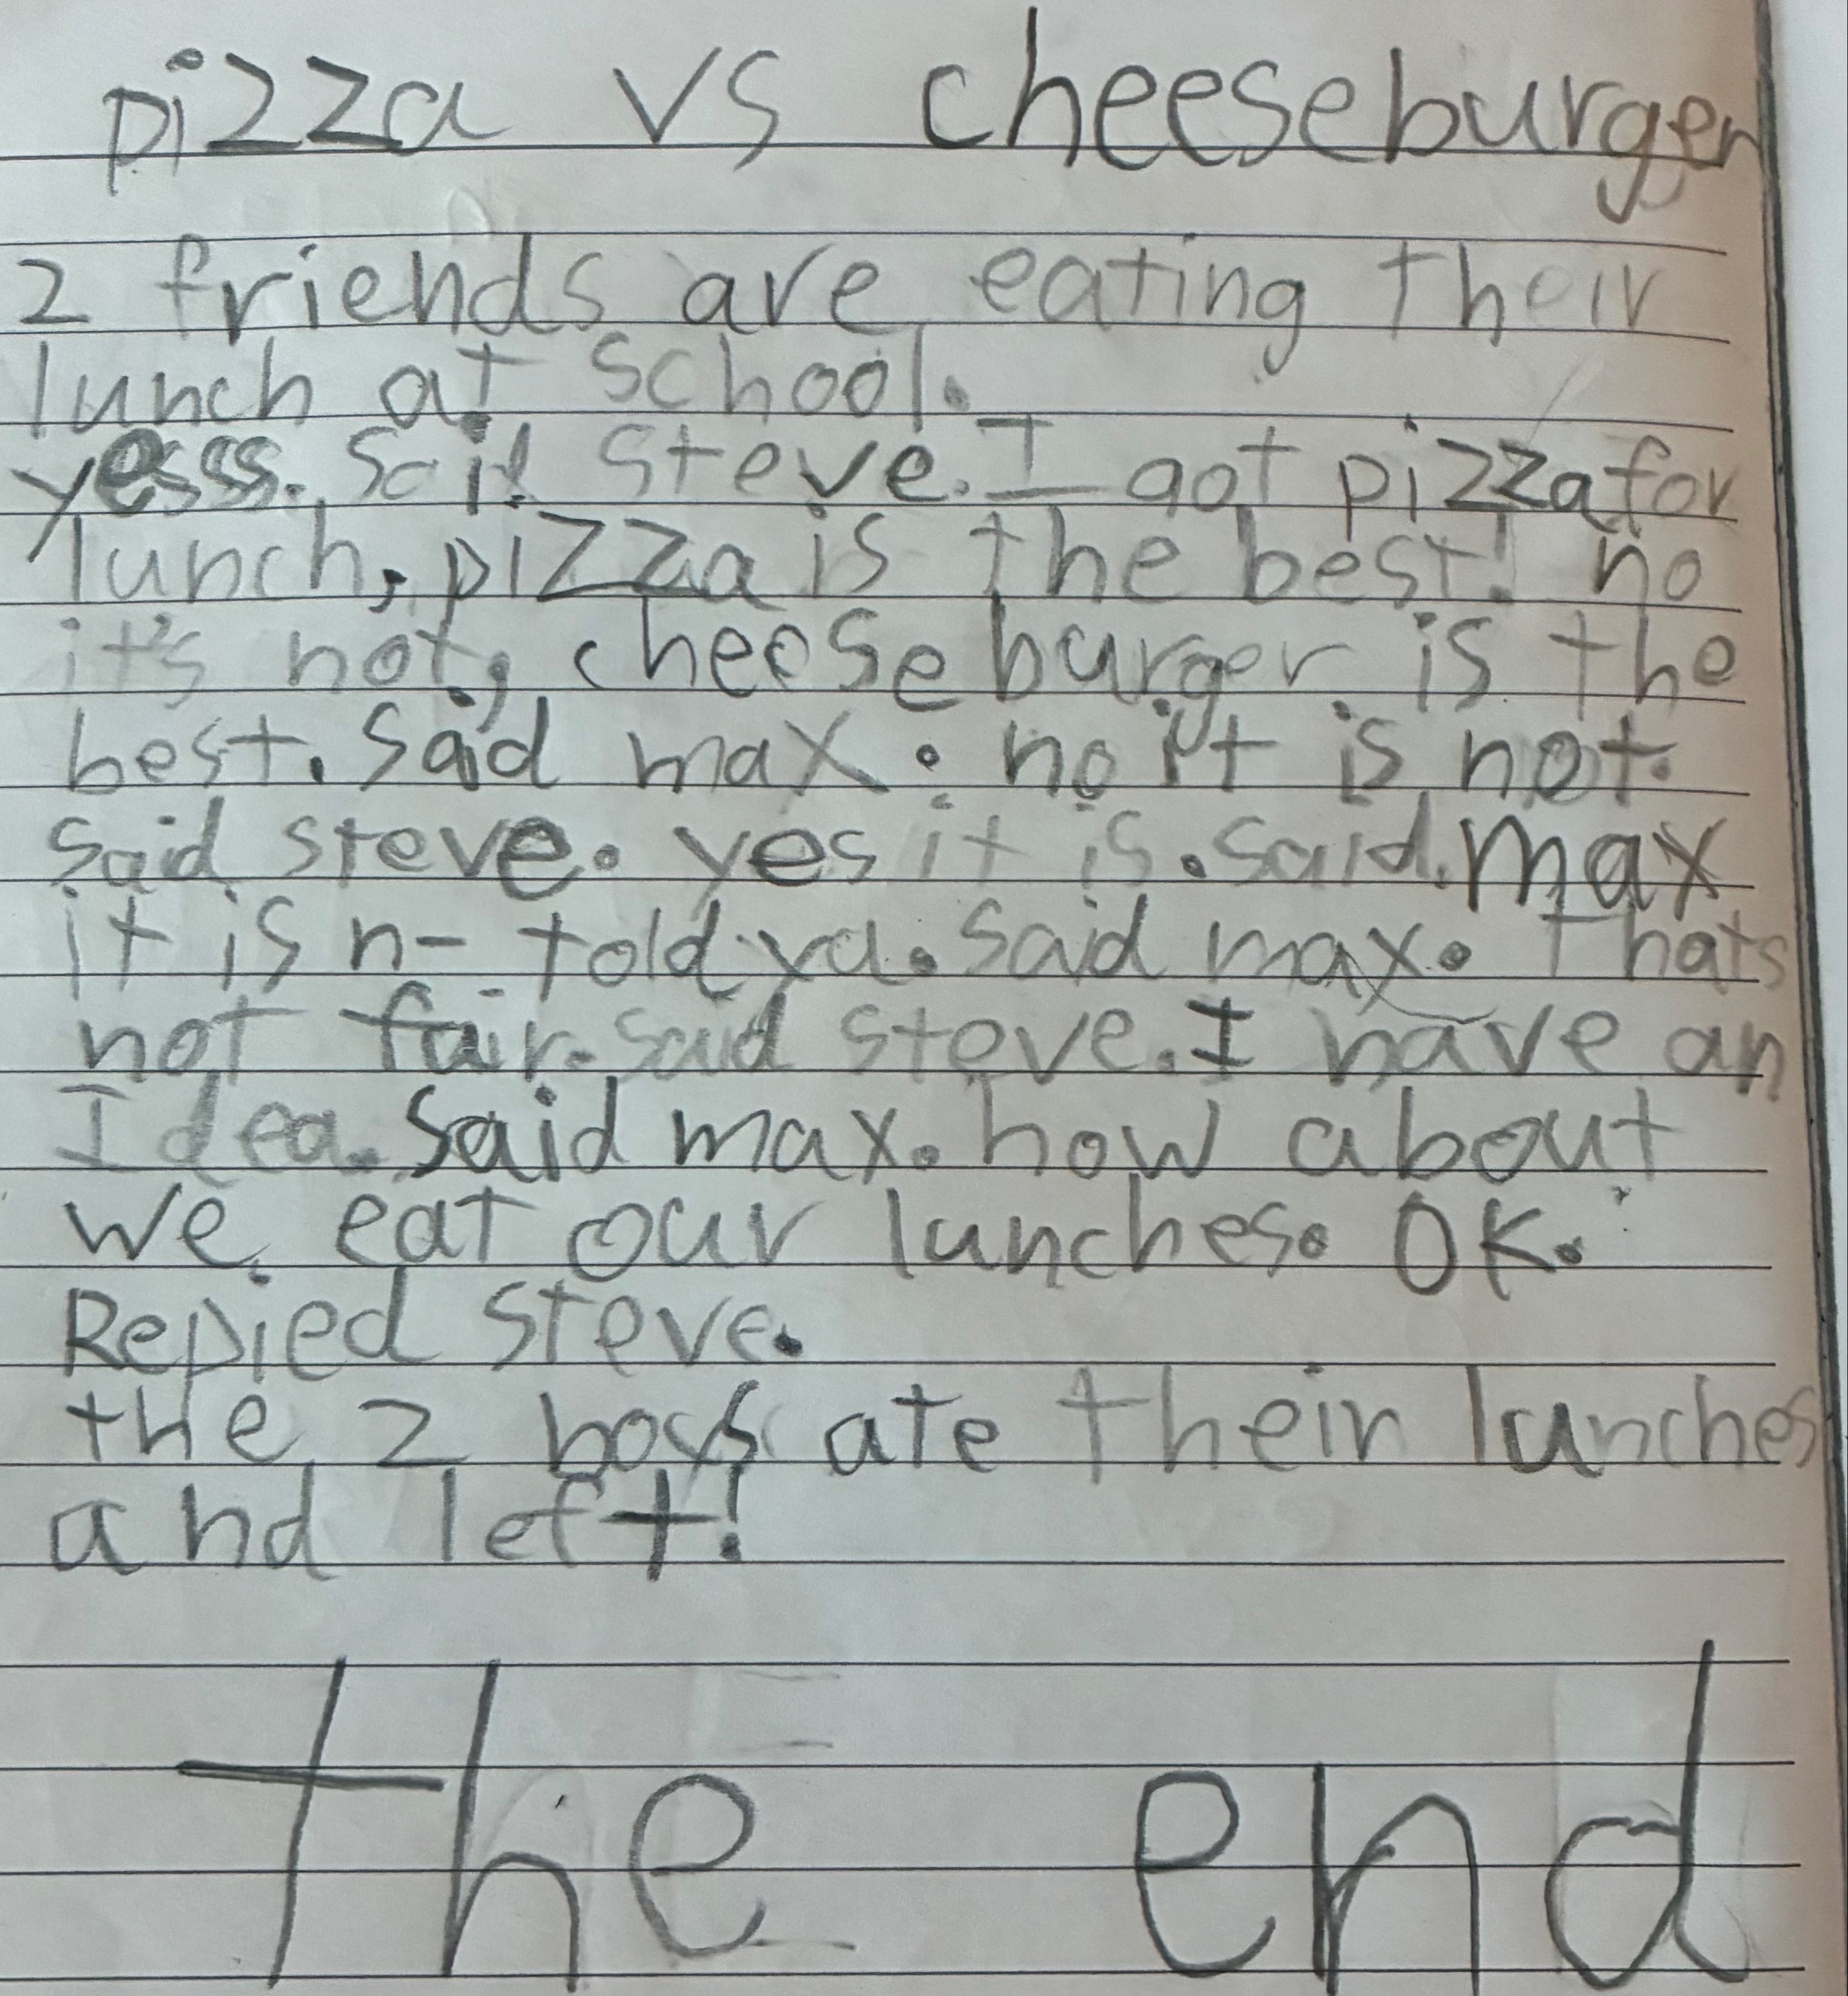 pizza vs cheeseburger
2 friends are eating their
lunch at school.
yesss. said steve. I got pizza for
lunch, pizza is the best! no
it's not, cheese burger is the
best. said max. no it is not.
said steve. yes it is. said max
it is n- told ya. said max. thats
not fair. said steve. I have an
Idea. said max. how about
we eat our lunches. OK.
Repied steve.
the 2 boys ate their lunches
and left!
the end